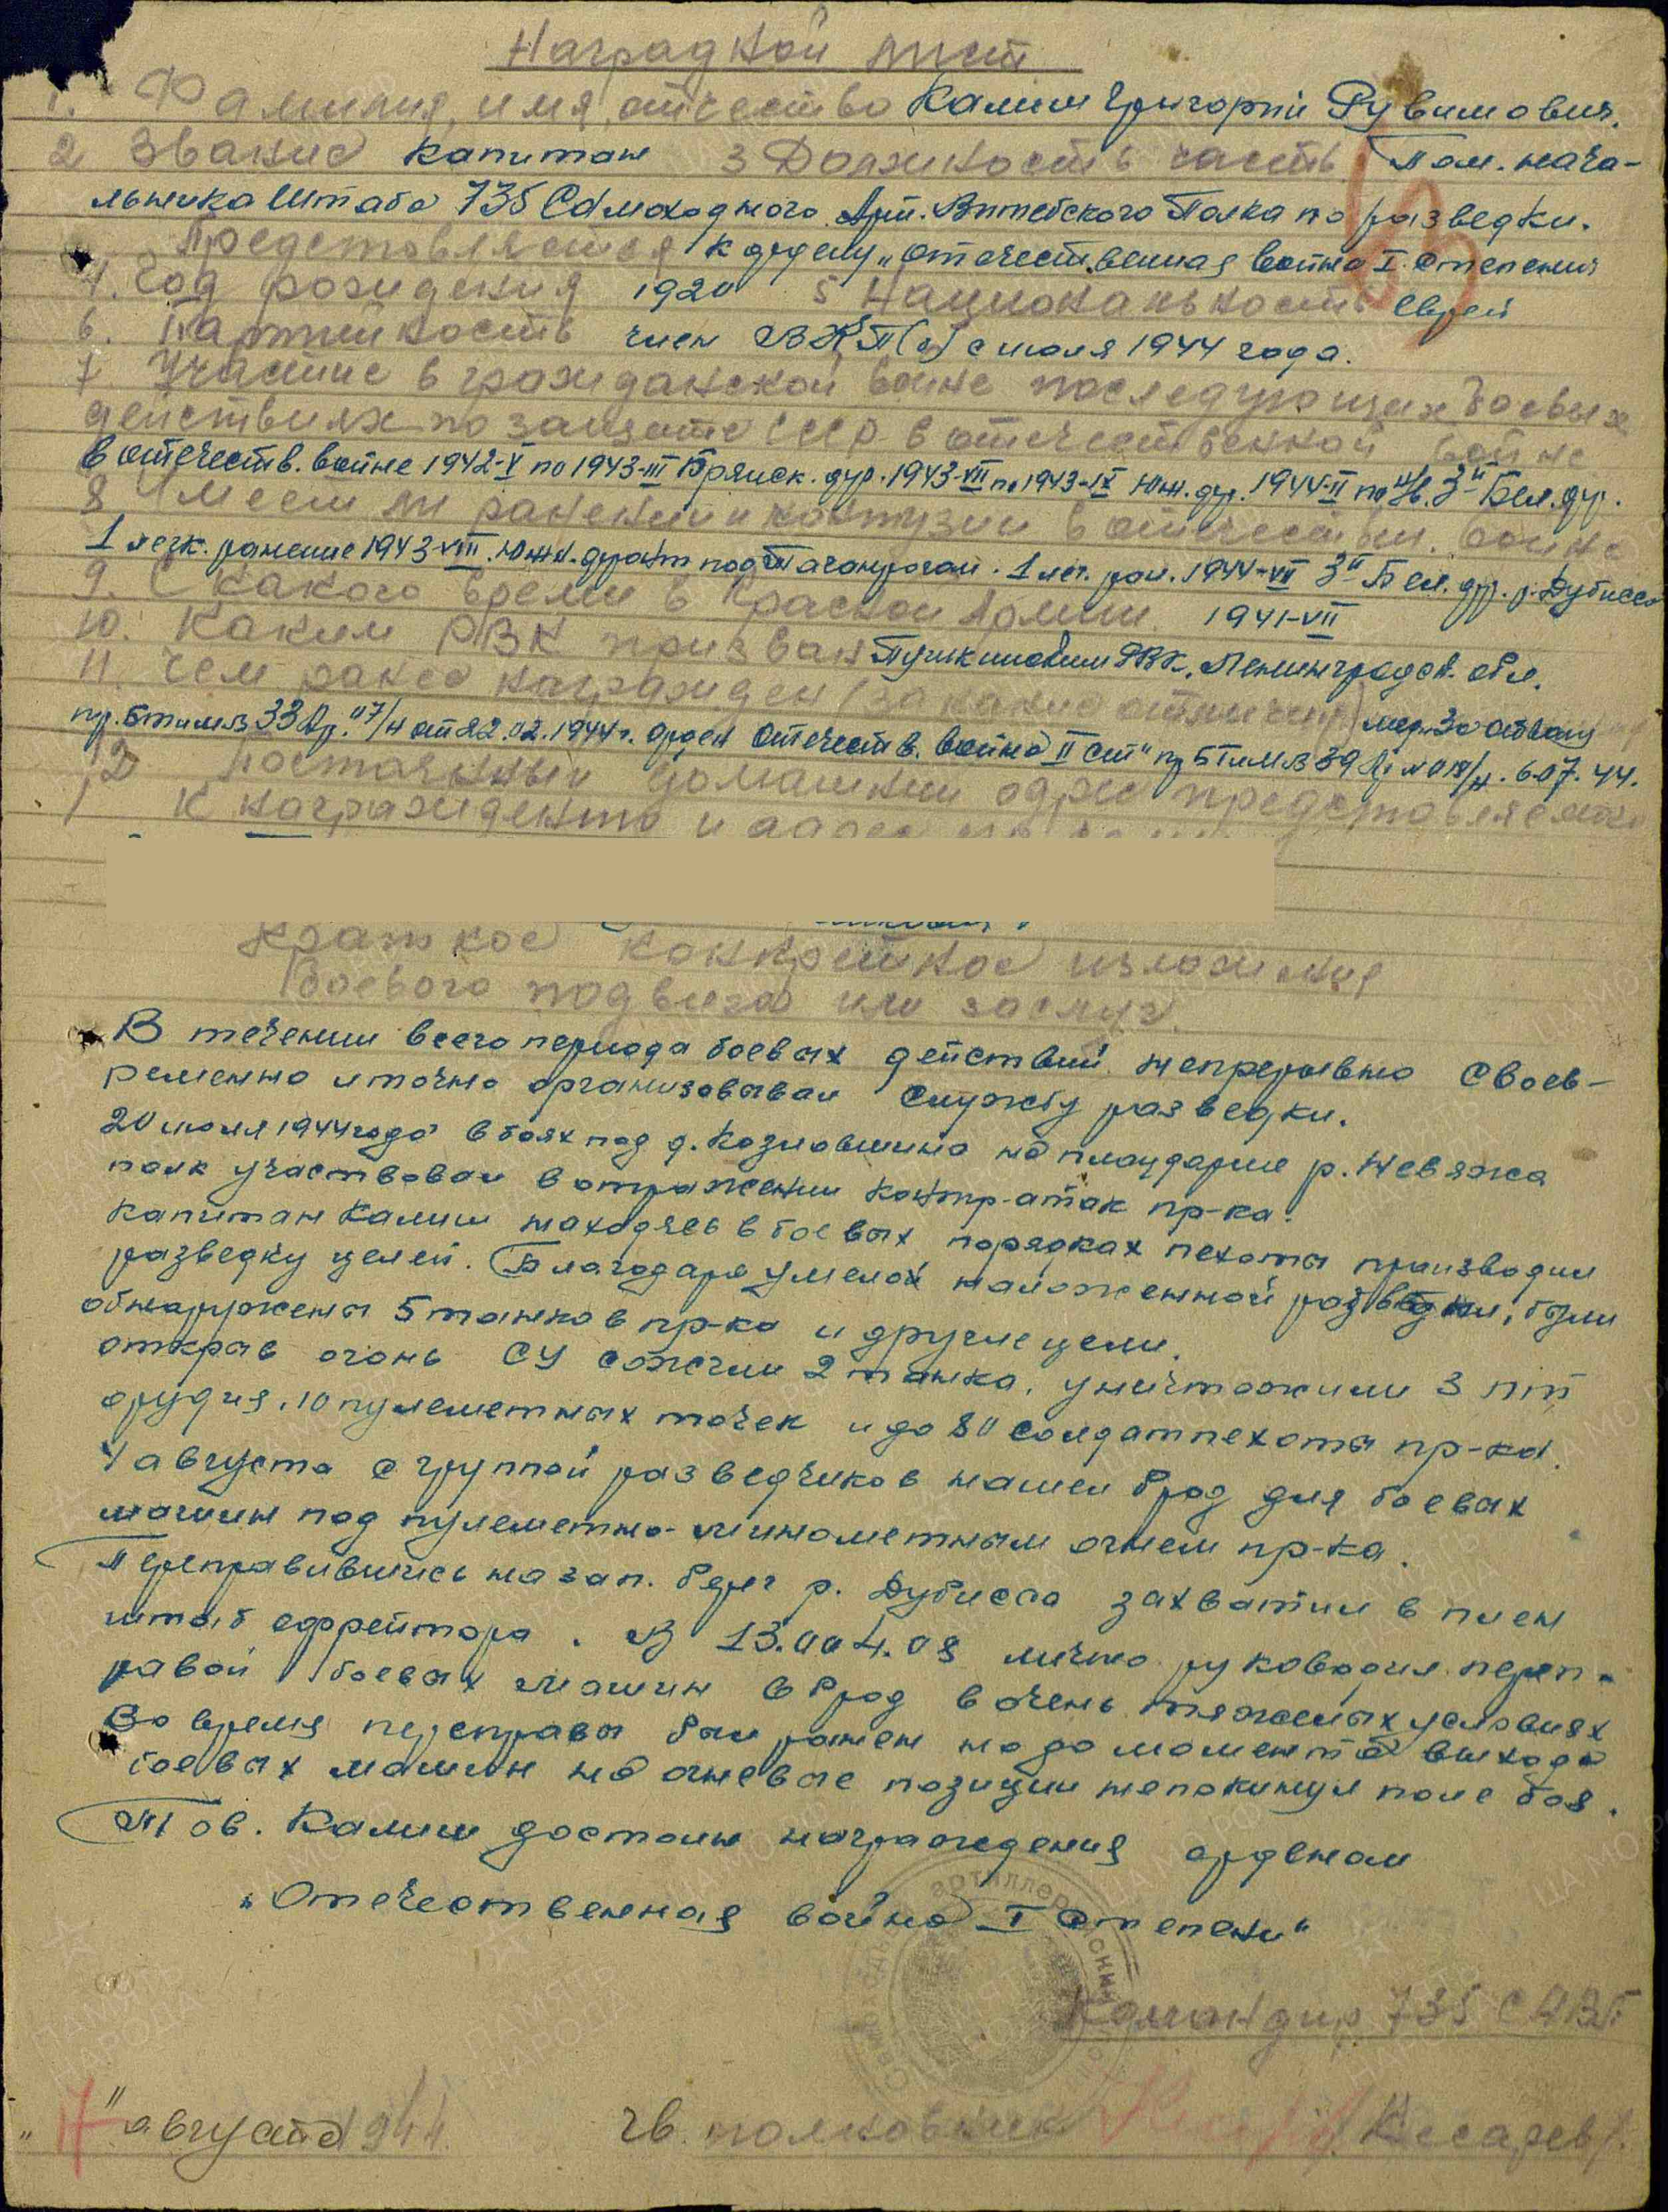 Наградной лист
1. Фамилия, имя, отчество Калиш Григорий Рувимович.
2 Звание капитан 3 Должность часть Пом. нача-
льника Штаба 735 Самоходного Арт. Витебского Полка по разведки.
Представляется к ордену „Отечественная война I степени
4. Год рождения 1920 5 Национальность еврей
6. Партийность член ВКП(б) с июля 1944 года.
7 Участие в гражданской войне последующих боевых
действиях по защите СССР в отечественной войне
в отечеств. войне 1942-V по 1943-III Брянск. фр. 1943-VII по 1943-IX Юж. фр. 1944-II по н/в. 3й Бел. фр.
8 Имеет ли ранения и контузии в отечествен. войне
1 легк. ранение 1943-VIII. Южн. фронт под Таганрогом. 1 лег. ран. 1944-VII 3й Бел. фр. р. Дубисса
9. С какого время в Красной Армии. 1941-VII
10. Каким РВК призван Пушкинским РВК, Ленинградск. обл.
11. Чем ранее награжден (за какие отличия) мед. За отвагу
пр. БТиМВ 33 Ар. 07/н от 22.02.1944 г. Орден Отечеств. война II ст" пр БТиМВ 39 Ар № 018/н. 6.07.44.
12 Постоянный домашний адрес представляемого
к награждению и адрес
Краткое конкретное изложения
боевого подвига или заслуг.
В течении всего периода боевых действий непрерывно своев-
ременно и точно организовывал службу разведки.
20 июля 1944 года в боях под д. Козловшино на плацдарме р. Невяжа
полк участвовал в отражении контр-атак пр-ка.
Капитан Калиш находясь в боевых порядках пехоты производил
разведку целей. Благодаря умелой наложенной разведки, были
обнаружены 5 танков пр-ка и другие цели.
открыв огонь СУ сожгли 2 танка, уничтожили 3 пт
орудия, 10 пулеметных точек и до 80 солдат пехоты пр-ка.
4 августа с группой разведчиков нашел брод для боевых
машин под пулеметно-минометным огнем пр-ка.
Переправившись на зап. берег р. Дубисса захватил в плен
штаб ефрейтора. В 13.00 4.08 лично руководил переп-
равой боевых машин в брод в очень тяжелых условиях
Во время переправы был ранен но до момента выхода
боевых машин на огневые позиции непокинул поле боя.
Тов. Калиш достоин награждения орденом
„Отечественная война I степени"
Командир 735 САВП
„17" августа 1944 гв. полковник /Кесарев/.